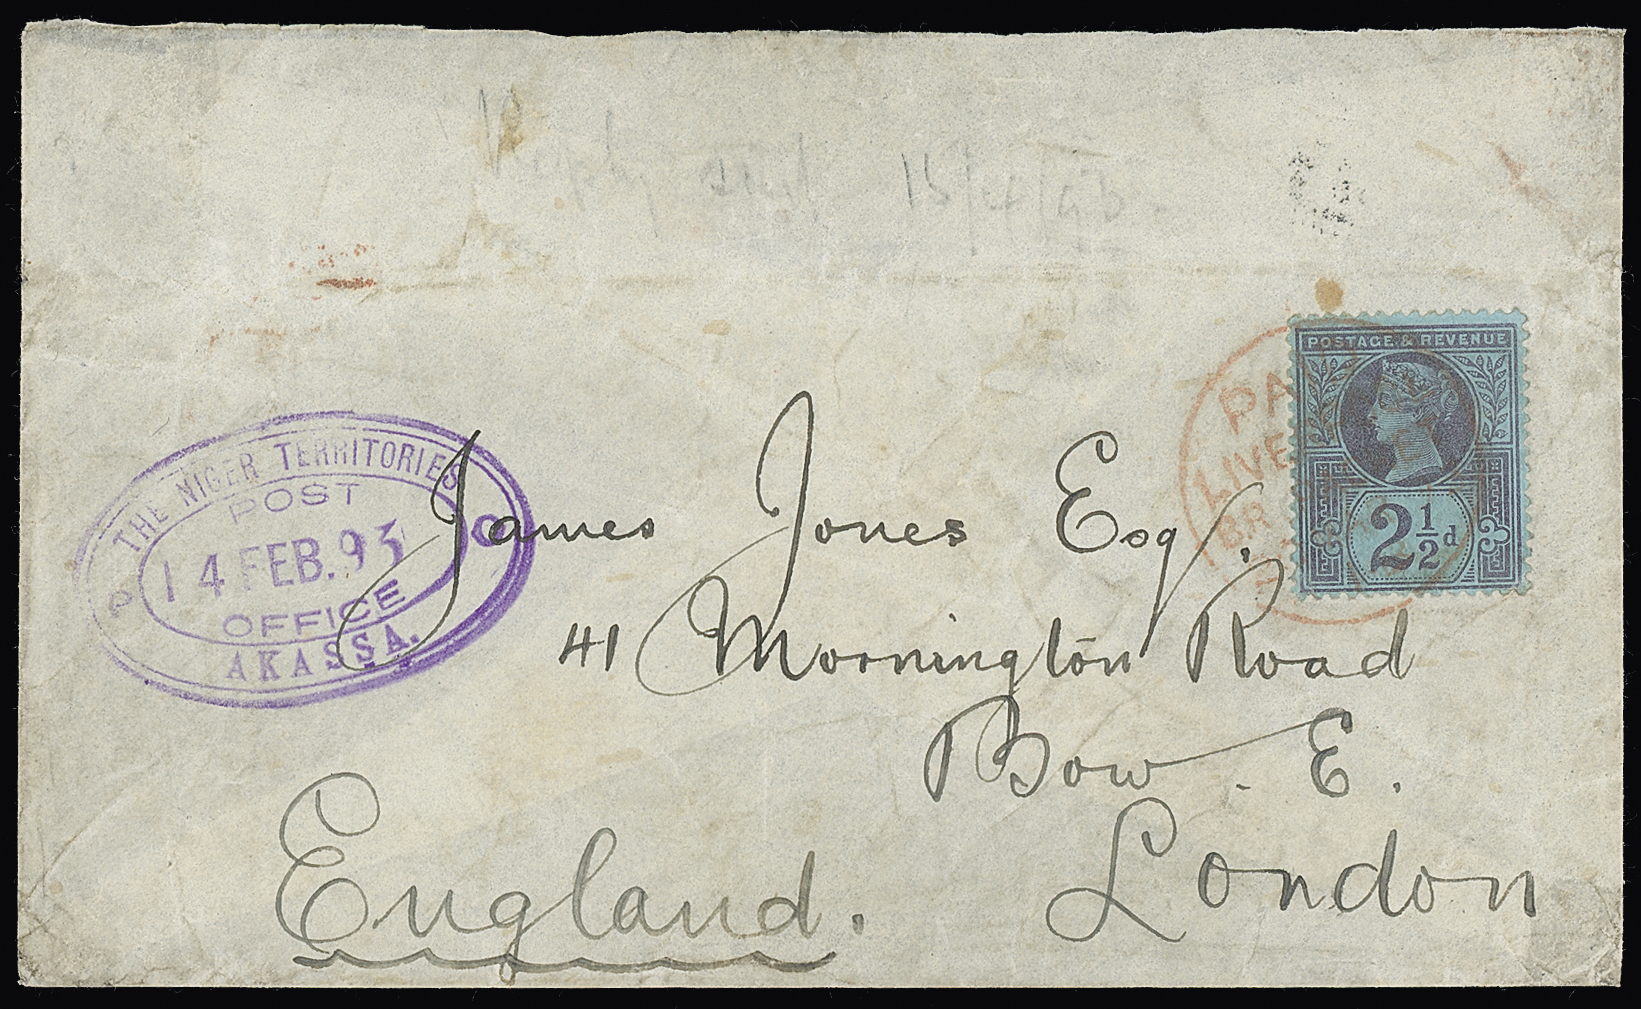 15/4/93.
POSTAGE & REVENUE
2½d
PA
LIVE
BR
THE NIGER TERRITORIES
POST
14 FEB. 93
OFFICE
AKASSA.
P
O
James Jones Esq.
41 Mornington Road
Bow. E.
London
England.